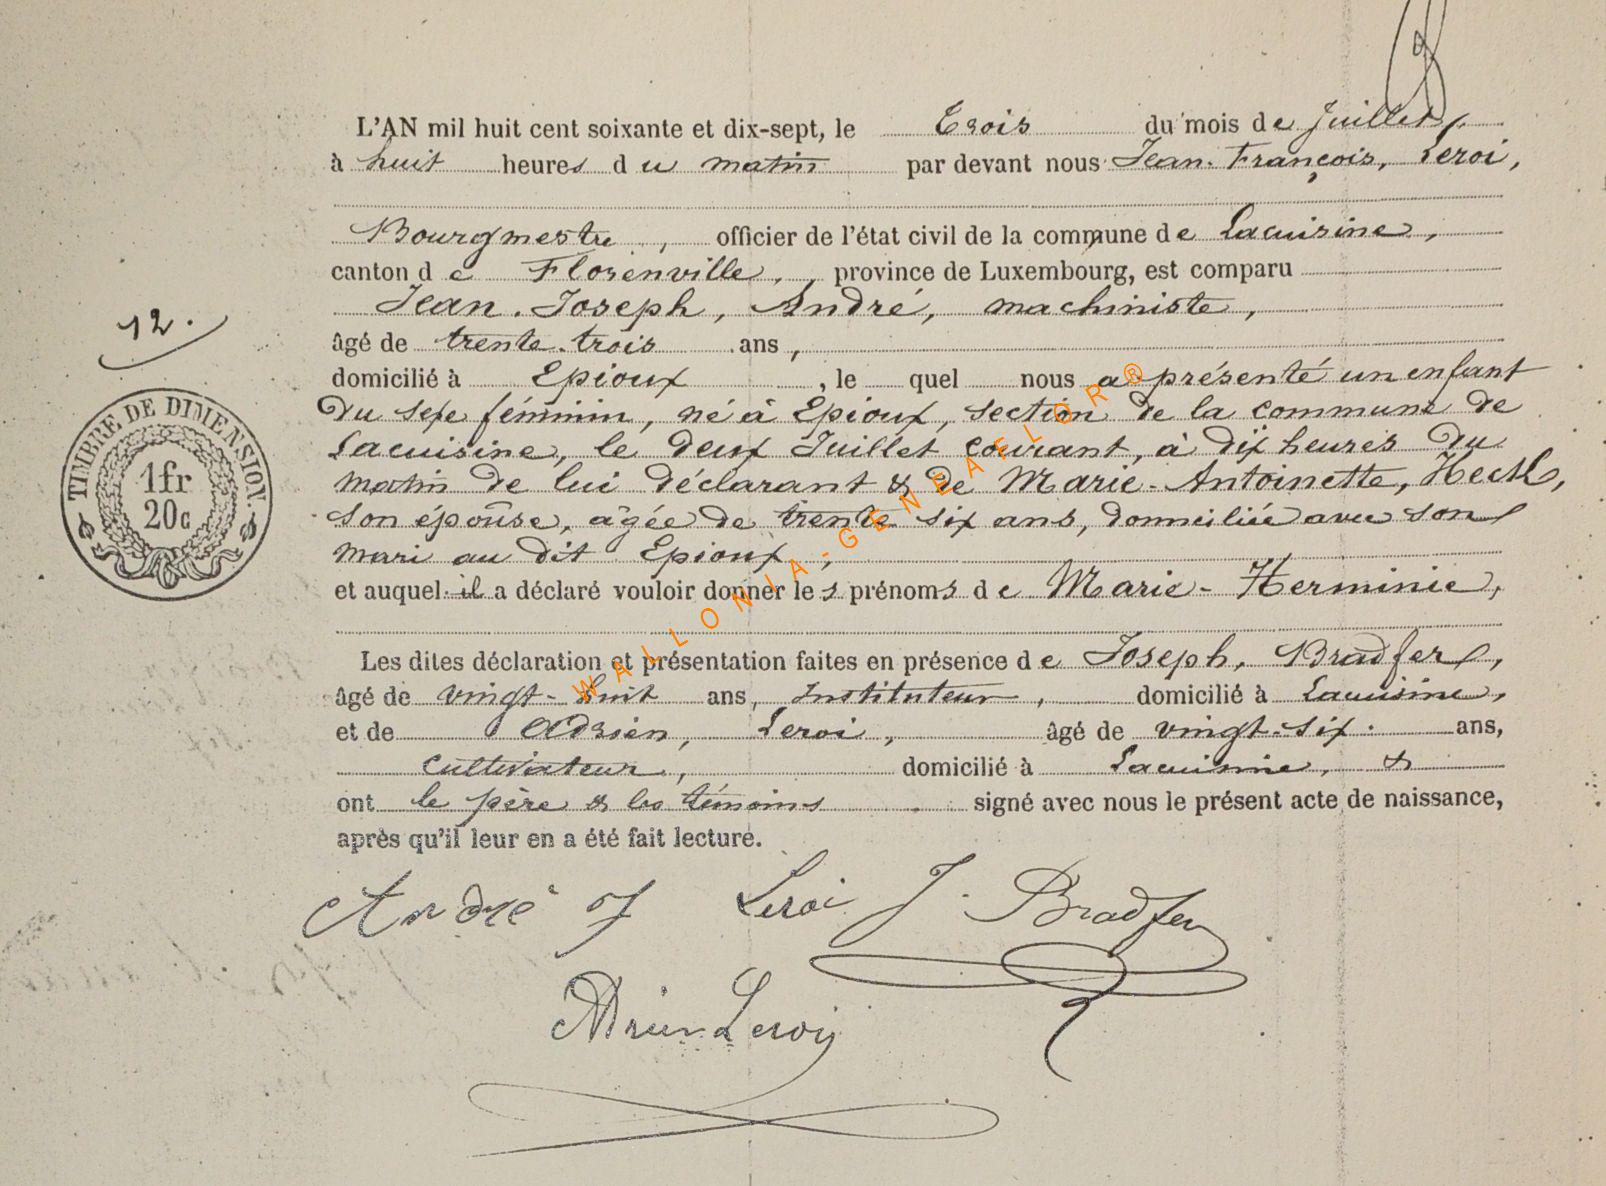 L'AN mil huit cent soixante et dix-sept, le Trois du mois de Juillet,
à huit heures du matin par devant nous Jean-François, Leroi,
Bourgmestre, officier de l'état civil de la commune de Lacuisine,
canton de Florenville, province de Luxembourg, est comparu
Jean-Joseph, André, machiniste,
12.
âgé de trente-trois ans,
domicilié à Epioux, le quel nous a présenté un enfant
du sexe féminin, né à Epioux, section de la commune de
Lacuisine, le deux Juillet courant, à dix heures du
matin de lui déclarant & de Marie-Antoinette, Heck,
son épouse, âgée de trente six ans, domiciliée avec son
mari au dit Epioux,
et auquel il a déclaré vouloir donner les prénoms de Marie-Herminie,
Les dites déclaration et présentation faites en présence de Joseph, Bradfer,
âgé de vingt-huit ans, Instituteur, domicilié à Lacuisine,
et de Adrien, Leroi, âgé de vingt-six ans,
cultivateur, domicilié à Lacuisine, &
ont le père & les témoins signé avec nous le présent acte de naissance,
après qu'il leur en a été fait lecture.
André J Leroi J. Bradfer
Adrien Leroy
TIMBRE DE DIMENSION.
1 fr
20 c
WALLONIA-GENEAFLOR®